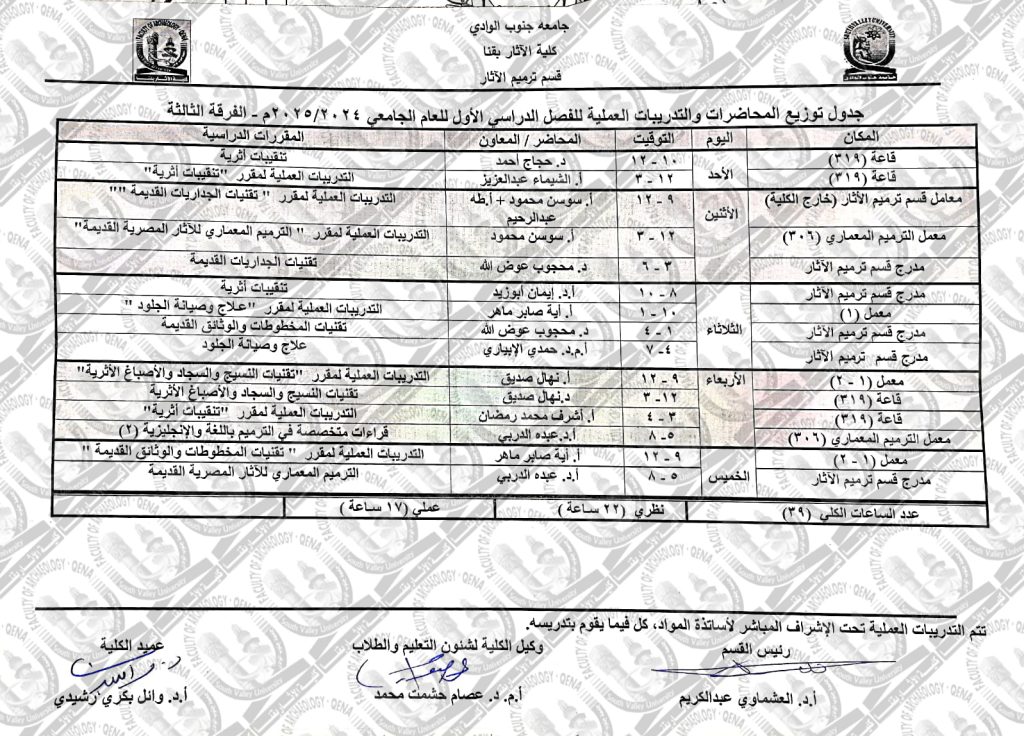 جامعه جنوب الوادي
كلية الآثار بقنا
قسم ترميم الآثار
جدول توزيع المحاضرات والتدريبات العملية للفصل الدراسي الأول للعام الجامعي ٢٠٢٥/٢٠٢٤م - الفرقة الثالثة
المكان اليوم التوقيت المحاضر / المعاون المقررات الدراسية
قاعة (٣١٩) الأحد ١٠ - ١٢ د. حجاج أحمد تنقيبات أثرية
قاعة (٣١٩) ١٢ - ٣ أ. الشيماء عبدالعزيز التدريبات العملية لمقرر "تنقيبات أثرية"
معامل قسم ترميم الآثار (خارج الكلية) الأثنين ٩ - ١٢ أ. سوسن محمود + أ.طه عبدالرحيم التدريبات العملية لمقرر " تقنيات الجداريات القديمة "
معمل الترميم المعماري (٣٠٦) ١٢ - ٣ أ. سوسن محمود التدريبات العملية لمقرر " الترميم المعماري للآثار المصرية القديمة"
مدرج قسم ترميم الآثار ٣ - ٦ د. محجوب عوض الله تقنيات الجداريات القديمة
مدرج قسم ترميم الآثار الثلاثاء ٨ - ١٠ أ.د. إيمان أبوزيد تنقيبات أثرية
معمل (١) ١٠ - ١ أ. آية صابر ماهر التدريبات العملية لمقرر "علاج وصيانة الجلود "
مدرج قسم ترميم الآثار ١ - ٤ د. محجوب عوض الله تقنيات المخطوطات والوثائق القديمة
مدرج قسم ترميم الآثار ٤ - ٧ أ.م.د. حمدي الإبياري علاج وصيانة الجلود
معمل (١ - ٢) الأربعاء ٩ - ١٢ أ. نهال صديق التدريبات العملية لمقرر "تقنيات النسيج والسجاد والأصباغ الأثرية"
قاعة (٣١٩) ١٢ - ٣ د.نهال صديق تقنيات النسيج والسجاد والأصباغ الأثرية
قاعة (٣١٩) ٣ - ٤ أ. أشرف محمد رمضان التدريبات العملية لمقرر "تنقيبات أثرية"
معمل الترميم المعماري (٣٠٦) ٥ - ٨ أ.د.عبده الدربي قراءات متخصصة في الترميم باللغة والإنجليزية (٢)
معمل (١ - ٢) الخميس ٩ - ١٢ أ. آية صابر ماهر التدريبات العملية لمقرر " تقنيات المخطوطات والوثائق القديمة "
مدرج قسم ترميم الآثار ٥ - ٨ أ.د. عبده الدربي الترميم المعماري للآثار المصرية القديمة
عدد الساعات الكلي (٣٩) نظري (٢٢ ساعة) عملي (١٧ ساعة)
تتم التدريبات العملية تحت الإشراف المباشر لأساتذة المواد، كل فيما يقوم بتدريسه.
رئيس القسم وكيل الكلية لشئون التعليم والطلاب عميد الكلية
أ.د. العشماوي عبدالكريم أ.م.د. عصام حشمت محمد أ.د. وائل بكري رشيدي
FACULTY OF ARCHAEOLOGY · QENA
South Valley University